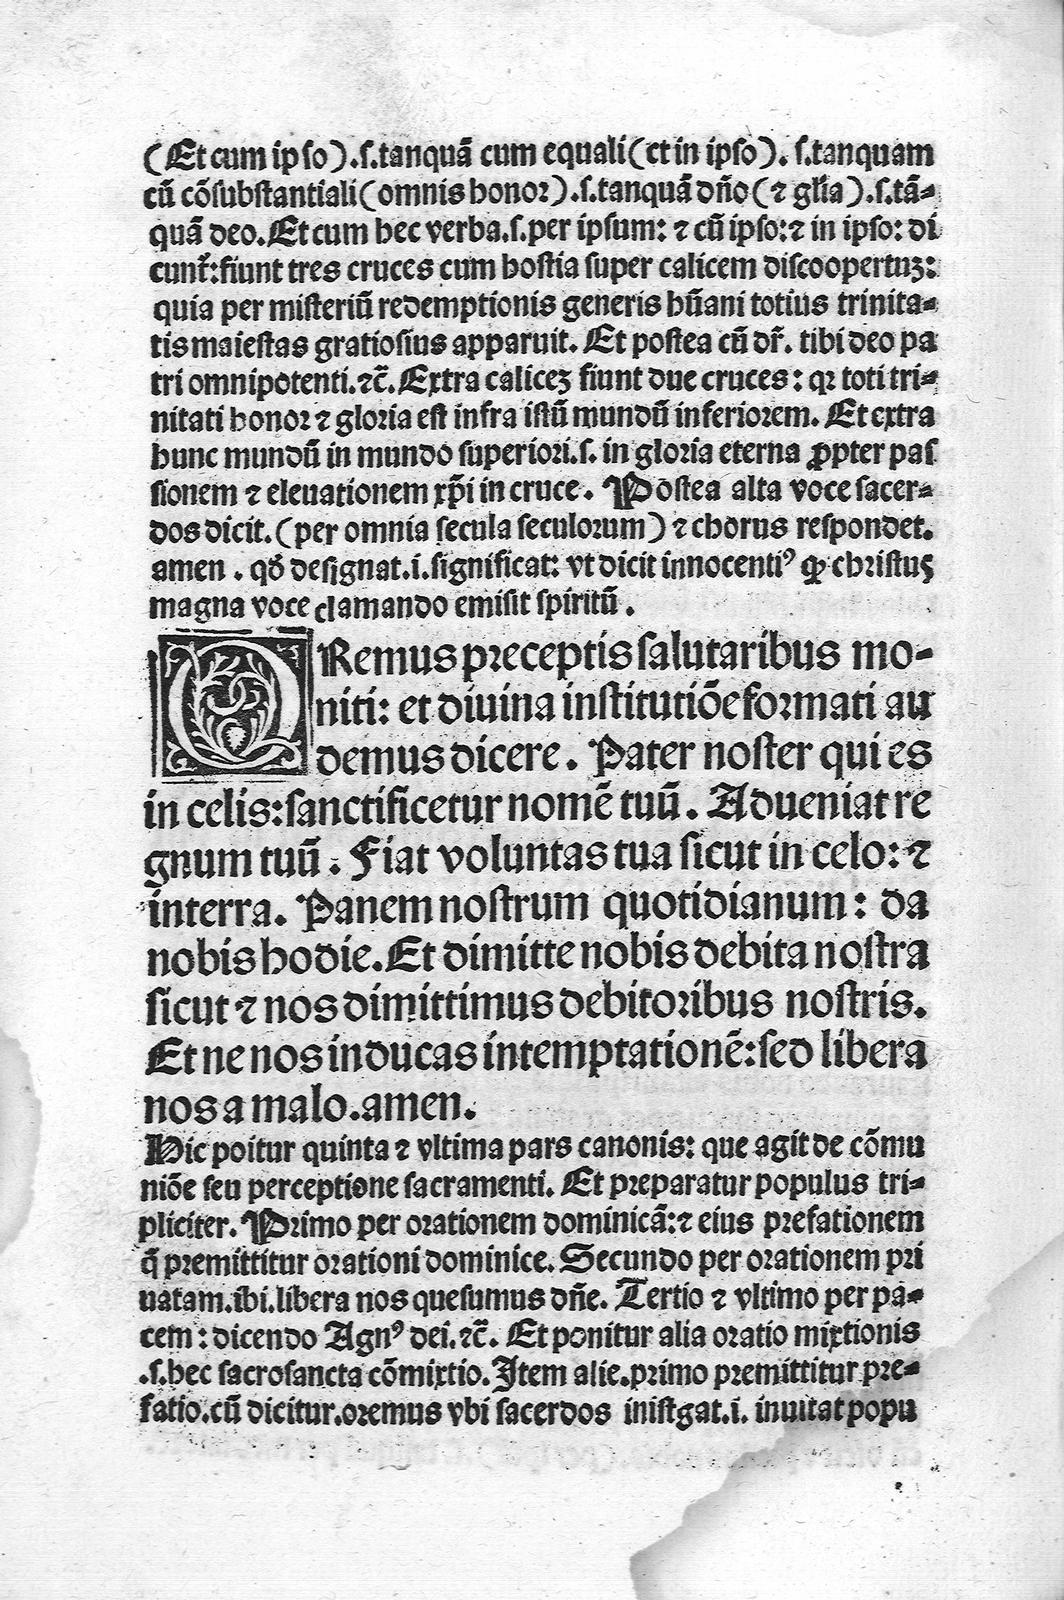 (Et cum ipſo).ſ.tanquā cum equali(et in ipſo). ſ.tanquam
cū cōſubſtantiali(omnis honoꝛ).ſ.tanquā dn̄o(⁊ gl̄ia).ſ.tā-
quā deo.Et cum hec verba.ſ.per ipſum: ⁊ cū ipſo:⁊ in ipſo: di
cunt᷑:fiunt tres cruces cum hoſtia ſuper calicem diſcoopertuꝫ:
quia per miſteriū redemptionis generis hūani totius trinita-
tis maieſtas gratioſius apparuit. Et poſtea cū dr̄. tibi deo pa
tri omnipotenti.⁊c̄. Extra caliceꝫ fiunt due cruces: qꝛ toti tri-
nitati honoꝛ ⁊ gloria eſt infra iſtū mundū inferiorem. Et extra
hunc mundū in mundo ſuperiori.ſ. in gloria eterna ꝓpter paſ
ſionem ⁊ eleuationem xp̄i in cruce. Poſtea alta voce ſacer-
dos dicit.(per omnia ſecula ſeculoꝛum) ⁊ chorus reſpondet.
amen . qđ deſignat.i.ſignificat: vt dicit innocentiꝰ ꝙ chriſtus
magna voce clamando emiſit ſpiritū .
ORemus pꝛeceptis ſalutaribus mo-
niti: et diuina inſtitutiōe foꝛmati au
demus dicere . Pater noſter qui es
in celis:ſanctificetur nomē tuū . Adueniat re
gnum tuū . Fiat voluntas tua ſicut in celo: ⁊
in terra. Panem noſtrum quotidianum : da
nobis hodie.Et dimitte nobis debita noſtra
ſicut ⁊ nos dimittimus debitoꝛibus noſtris.
Et ne nos inducas in temptationē:ſed libera
nos a malo.amen.
Hic poitur quinta ⁊ vltima pars canonis: que agit de cōmu
niōe ſeu perceptione ſacramenti. Et pꝛeparatur populus tri-
pliciter. Pꝛimo per oꝛationem dominicā:⁊ eius pꝛefationem
q̄ pꝛemittitur oꝛationi dominice. Secundo per oꝛationem pꝛi
uatam.ibi.libera nos queſumus dn̄e. Tertio ⁊ vltimo per pa-
cem : dicendo Agnꝰ dei.⁊c̄. Et ponitur alia oꝛatio mixtionis
.ſ.hec ſacroſancta cōmixtio. Item alie.pꝛimo pꝛemittitur pꝛe-
fatio.cū dicitur.oꝛemus vbi ſacerdos iniſtgat.i. inuitat popu